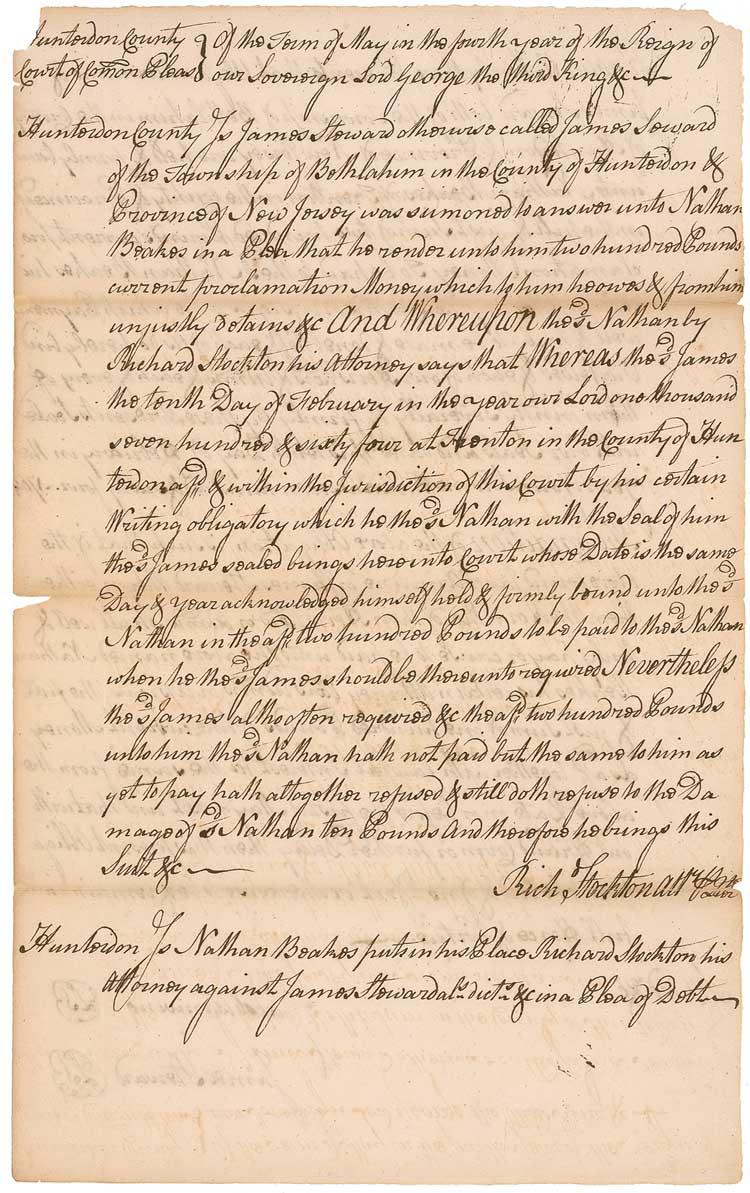 Hunterdon County } Of the Term of May in the fourth year of the Reign of
Court of Comon Pleas } our Sovereign Lord George the third King &c
Hunterdon County Ss James Steward otherwise called James Seward
of the Township of Bethlahim in the County of Hunterdon &
Province of New Jersey was sumoned to answer unto Nathan
Beakes in a Plea that he render unto him two hundred Pounds
current proclamation Money which to him he owes & from him
unjustly detains &c And Whereupon the sd Nathan by
Richard Stockton his Attorney says that Whereas the sd James
the tenth Day of February in the year our Lord one thousand
seven hundred & sixty four at Trenton in the County of Hun
terdon afsd & within the Jurisdiction of this Court by his certain
Writing obligatory which he the sd Nathan with the Seal of him
the sd James sealed brings here into Court whose Date is the same
Day & year acknowledged himself held & firmly bound unto the sd
Nathan in the afsd two hundred Pounds to be paid to the sd Nathan
when he the sd James should be thereunto required Nevertheless
the sd James altho often required &c the afsd two hundred Pounds
unto him the sd Nathan hath not paid but the same to him as
yet to pay hath altogether refused & still doth refuse to the Da
mage of sd Nathan ten Pounds And therefore he brings this
Suit &c
Richd Stockton Atty
Hunterdon Ss Nathan Beakes puts in his Place Richard Stockton his
Attorney against James Steward als dicts &c in a Plea of Debt